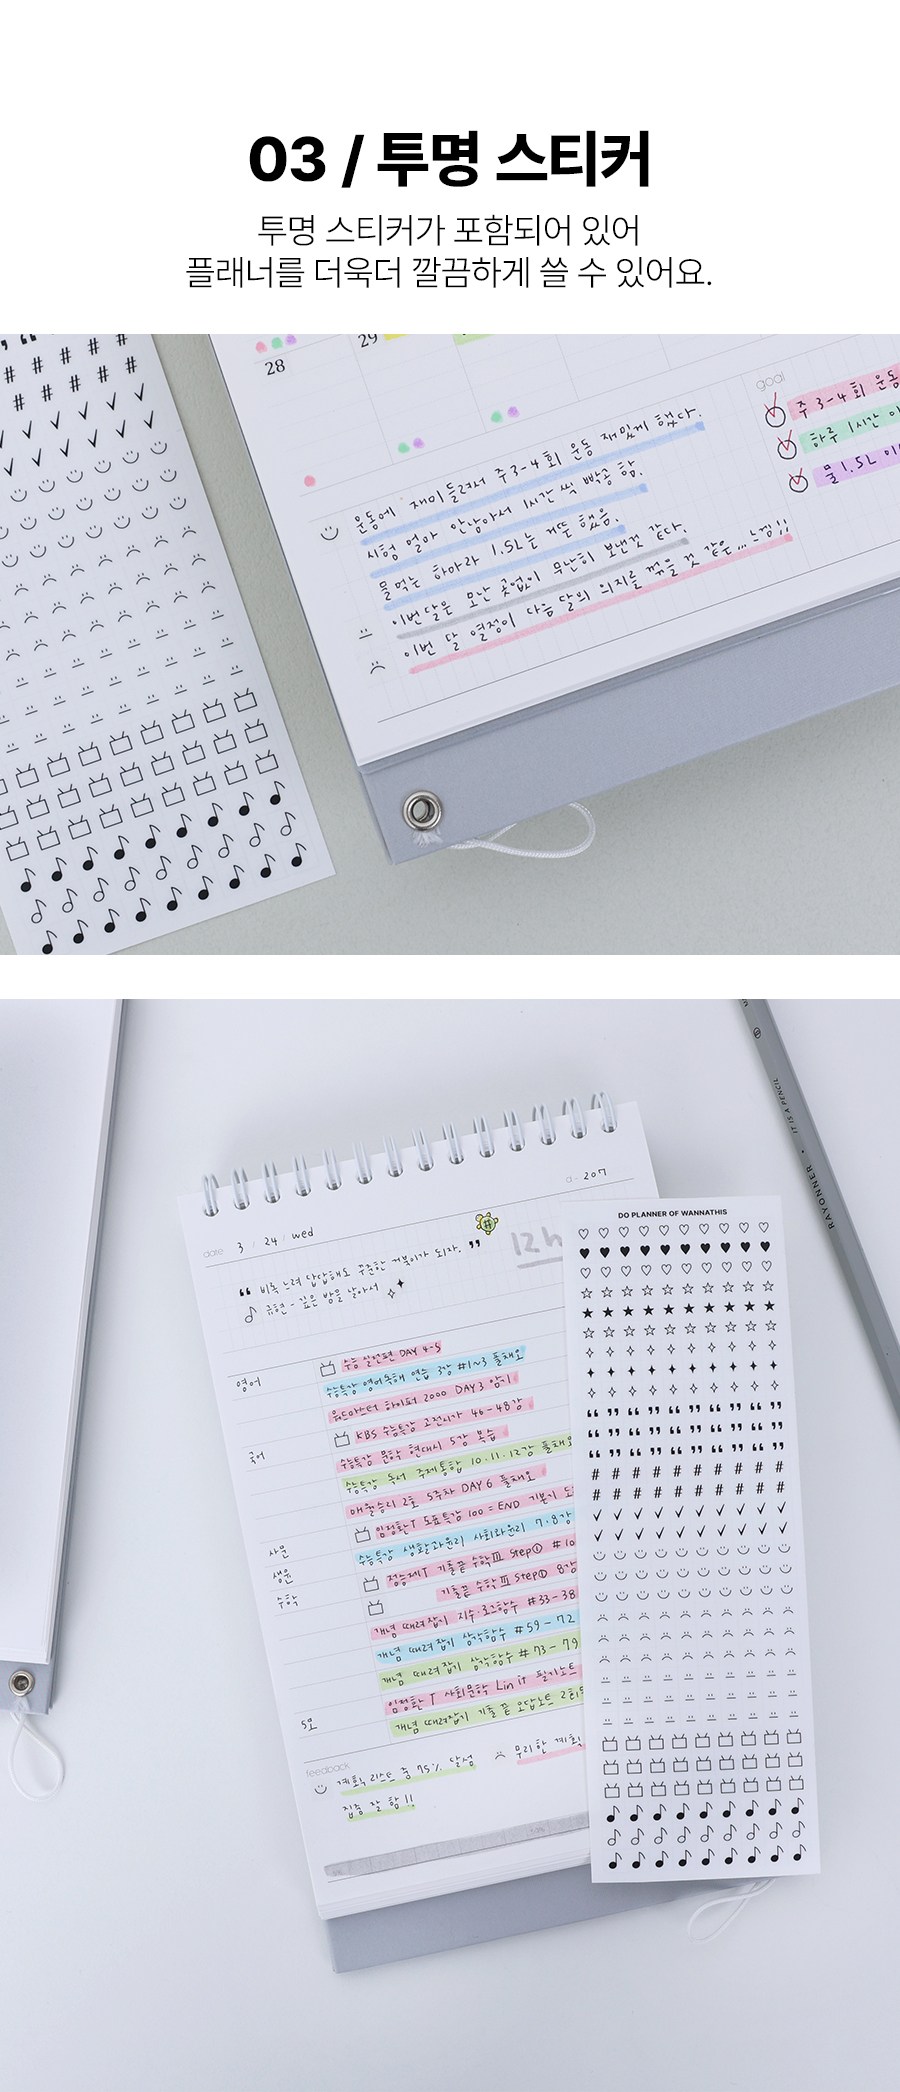 03 / 투명 스티커
투명 스티커가 포함되어 있어
플래너를 더욱더 깔끔하게 쓸 수 있어요.
28
29
goal
주 3-4회 운동
하루 1시간
물 1.5L
운동에 재미들려서 주 3-4회 운동 재밌게 했다.
시험 얼마 안남아서 1시간 씩 빡공 함.
물먹는 하마라 1.5L는 거뜬 했음.
이번달은 모난 곳없이 무난히 보낸것 같다.
이번 달 열정이 다음달의 의지를 꺾을 것 같은... 느낌!!
IT IS A PENCIL
RAYONNER
d - 207
date 3 / 24 / wed
12h
❝ 비록 느려 답답해도 꾸준한 거북이가 되자. ❞
규현 - 깊은 밤을 날아서
영어 수능 실전편 DAY 4-5
수능특강 영어독해 연습 3강 #1~3 풀채오
워드마스터 하이퍼 2000 DAY 3 암기
국어 KBS 수능특강 고전시가 46-48강
수능특강 문학 현대시 5강 복습
수능특강 독서 주제통합 10.11.12강 풀채오
매월승리 2호 5주차 DAY 6 풀채오
임정환T 도표특강 100 = END 기본기
사문 수능특강 생활과윤리 사회와윤리 7.8강
생윤 정승제T 기출끝 수학III Step① #10
수학 기출끝 수학III Step① 8강
개념 때려잡기 지수·로그함수 #33-38
개념 때려잡기 삼각함수 #59-72
개념 때려잡기 삼각함수 #73-79
임정환T 사회문학 Lin it 필기노트
개념 때려잡기 기출끝 오답노트
feedback
계획 리스트 중 75% 달성
집중 잘 함!!
무리한 계획
DO PLANNER OF WANNATHIS